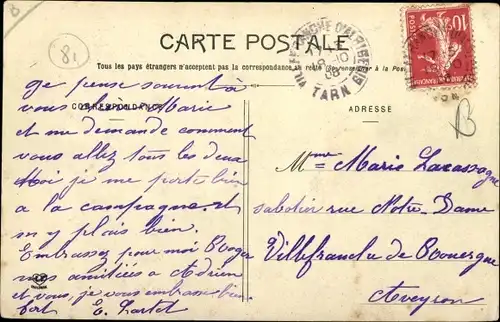 8
81
CARTE POSTALE
Tous les pays étrangers n'acceptent pas la correspondance au recto (Se renseigner à la Poste)
VILLEFRANCHE D'ALBIGEOIS
10
08
TARN
10c
CORRESPONDANCE
ADRESSE
B
Je pense souvent à
vous chère Marie
et me demande comment
vous allez tous les deux
Moi je me porte bien
a la campagne et
m'y plais bien.
Embrassez pour moi Roger
mes amitiées a Adrien
et vous, je vous embrasse bien
fort E. Lartet
Mme Marie Lacassagne
sabotin rue Notre-Dame
Villefranche de Rouergue
Aveyron